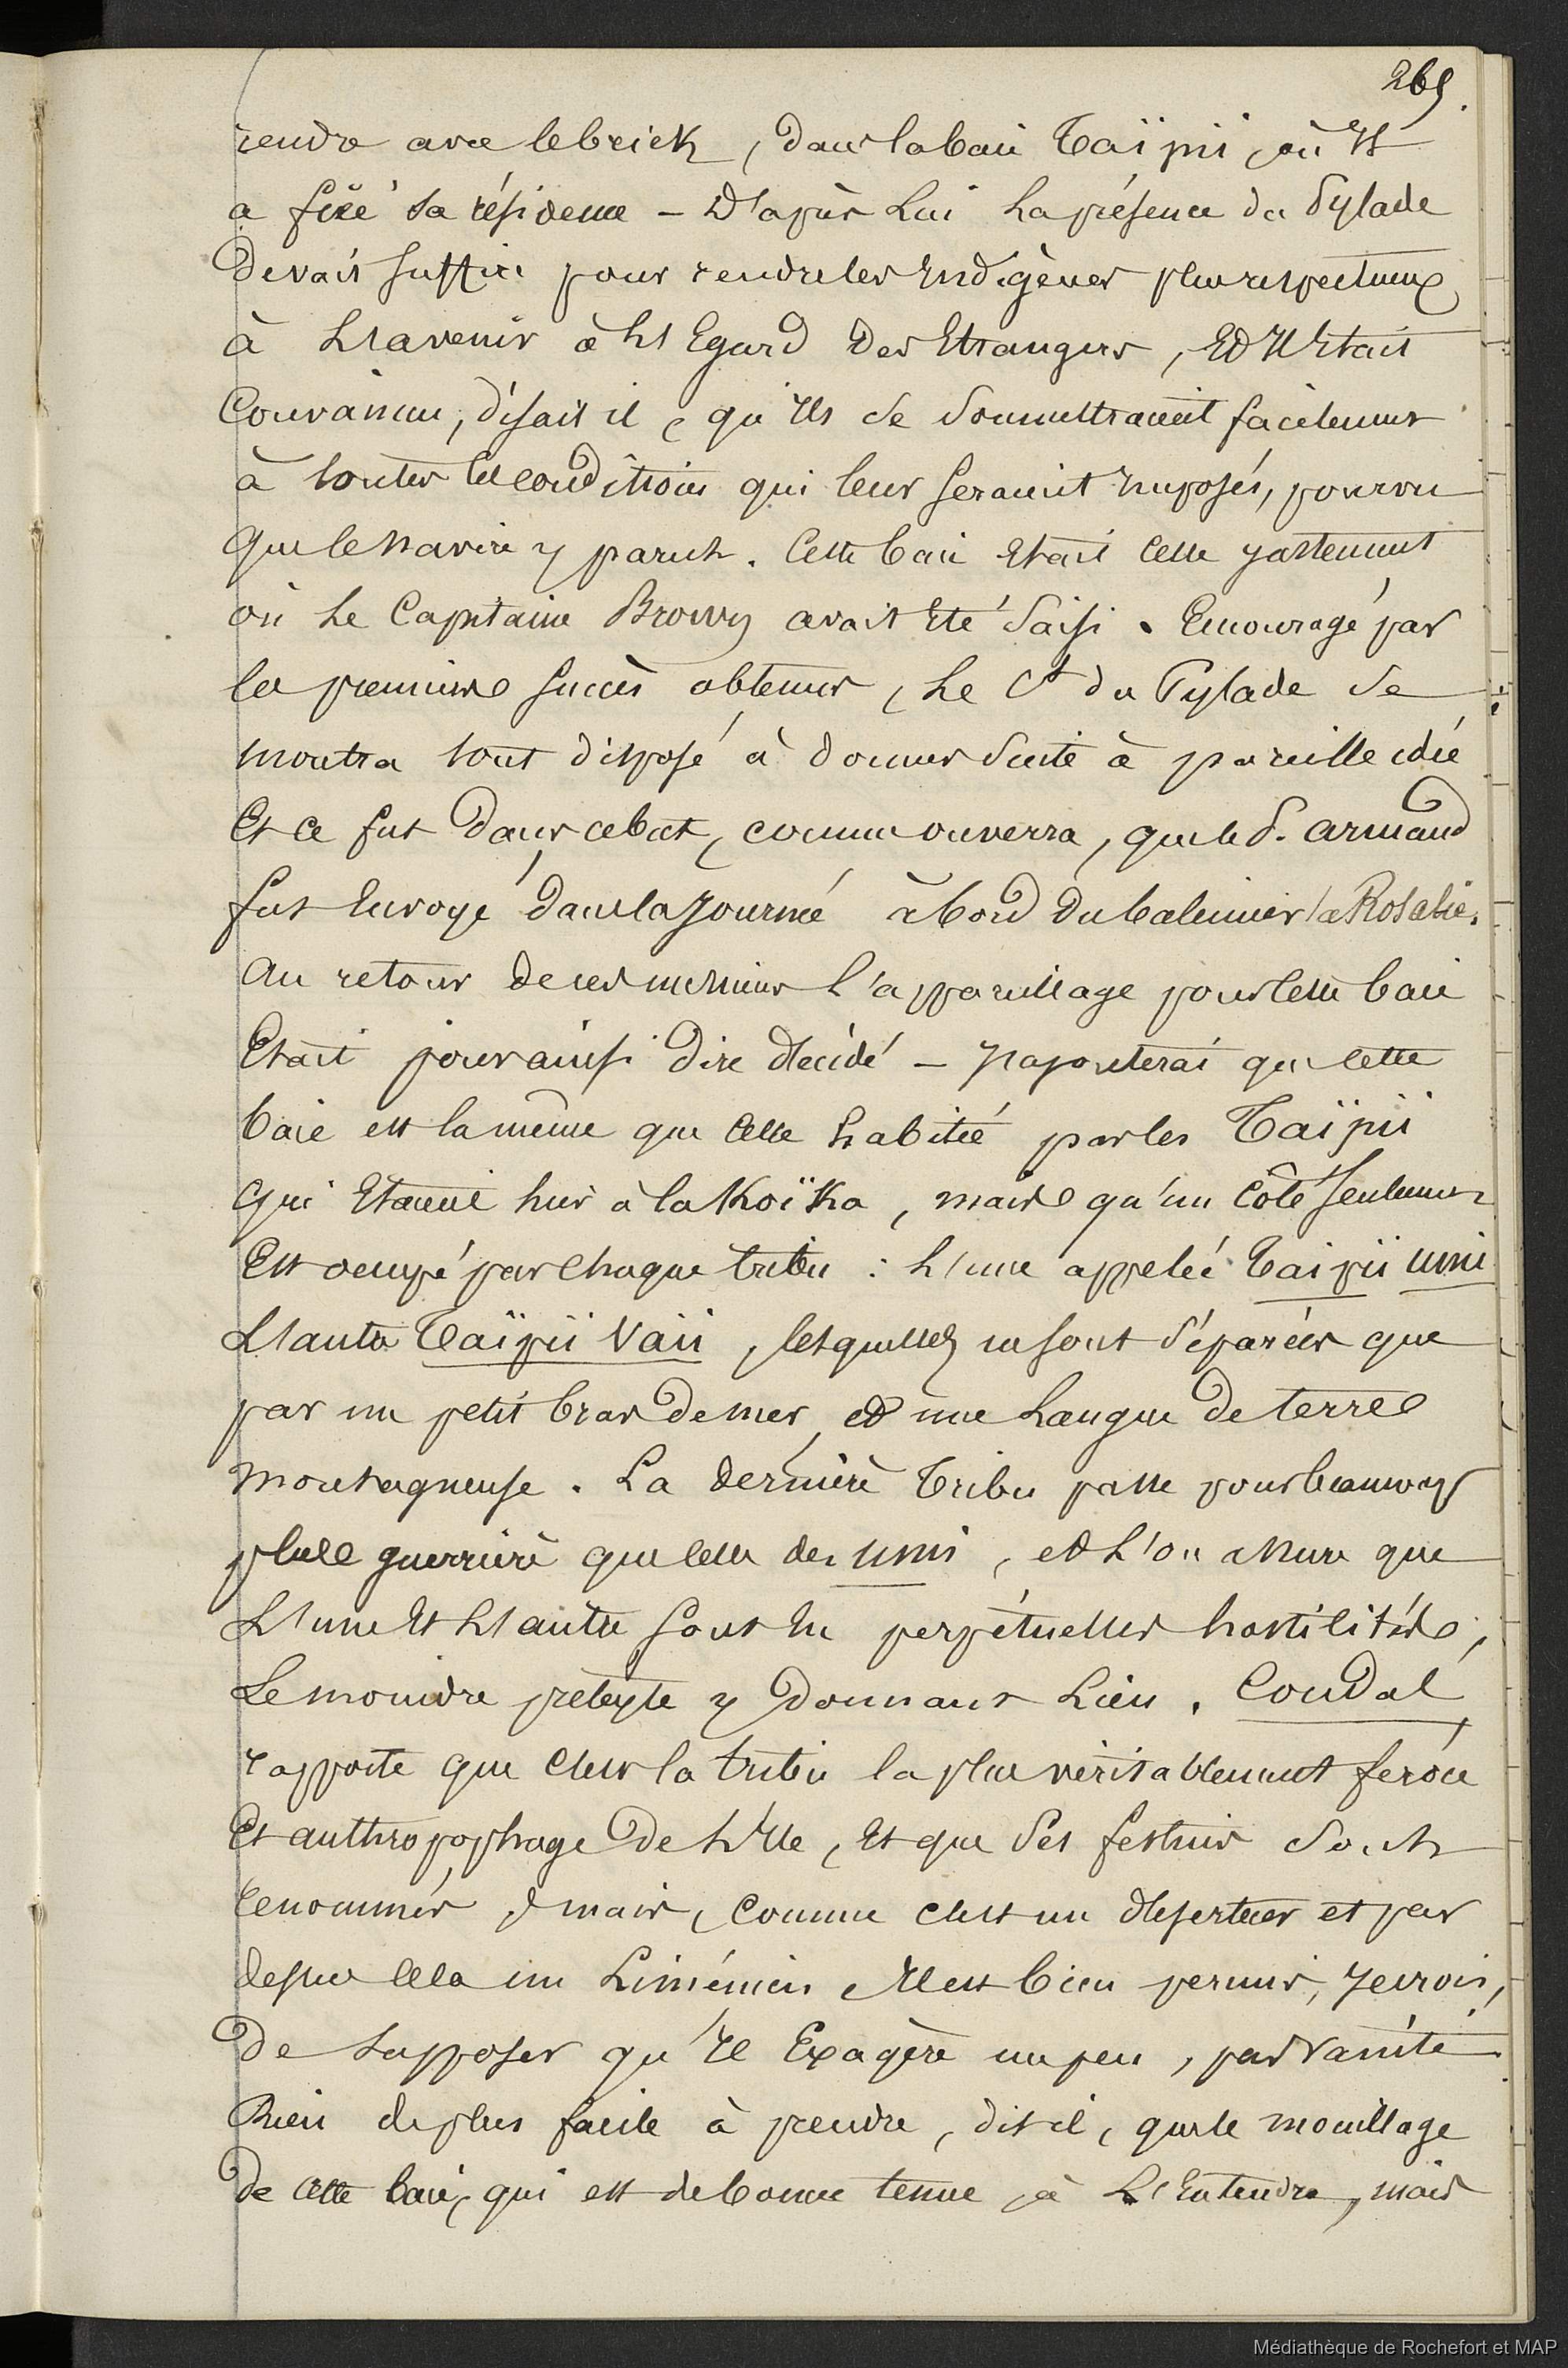 269.
rendre avec le brick, dans la baie Taïpii, où Il
a fixé sa résidence – D'après Lui La présence du Pylade
Devait suffire pour rendre les Indigènes plus respectueux
à L'avenir à L'Egard Des Etrangers, Et Il Etait
Convaincu, disait il, qu'Ils se soumettraient facilement
à toutes les conditions qui leur seraient Imposés, pourvu
que le navire y parut. Cette baie Etait celle justement
où Le Capitaine Brown avait Eté saisi. Encouragé par
les premiers succès obtenus, Le Ct du Pylade se
montra tout disposé à donner suite à pareille idée
Et ce fut Dans ce but, comme on verra, que le S. Armand
fut Envoyé dans la Journée à bord du baleinier la Rosalie.
Au retour de ces messieurs l'appareillage pour cette baie
Etait pour ainsi Dire décidé – J'ajouterai que cette
baie est la même que celle habitée par les Taïpii
qui Etaient hier à la Koïka, mais qu'un Côté seulement
Est occupé par chaque tribu : L'une appelée Taipii Umi
L'autre Taïpii Vaii, lesquelles ne sont séparées que
par un petit bras de mer et une Langue de terre
montagneuse. La dernière Tribu passe pour beaucoup
plus guerrière que celle des Umi, et L'on assure que
L'une Et L'autre sont En perpétuelles hostilités,
Le moindre prétexte y Donnant Lieu. Coudal
rapporte que c'est la tribu la plus véritablement féroce
Et anthropophage De L'Ile, Et que Ses festins sont
renommés, mais, comme c'est un déserteur et par
dessus cela un Liménien, Il est bien permis, Je crois,
De supposer qu'Il Exagère un peu, par vanité.
Rien de plus facile à prendre, dit il, que le mouillage
De cette baie, qui est de bonne tenue, à L'Entendre, mais
Médiathèque de Rochefort et MAP